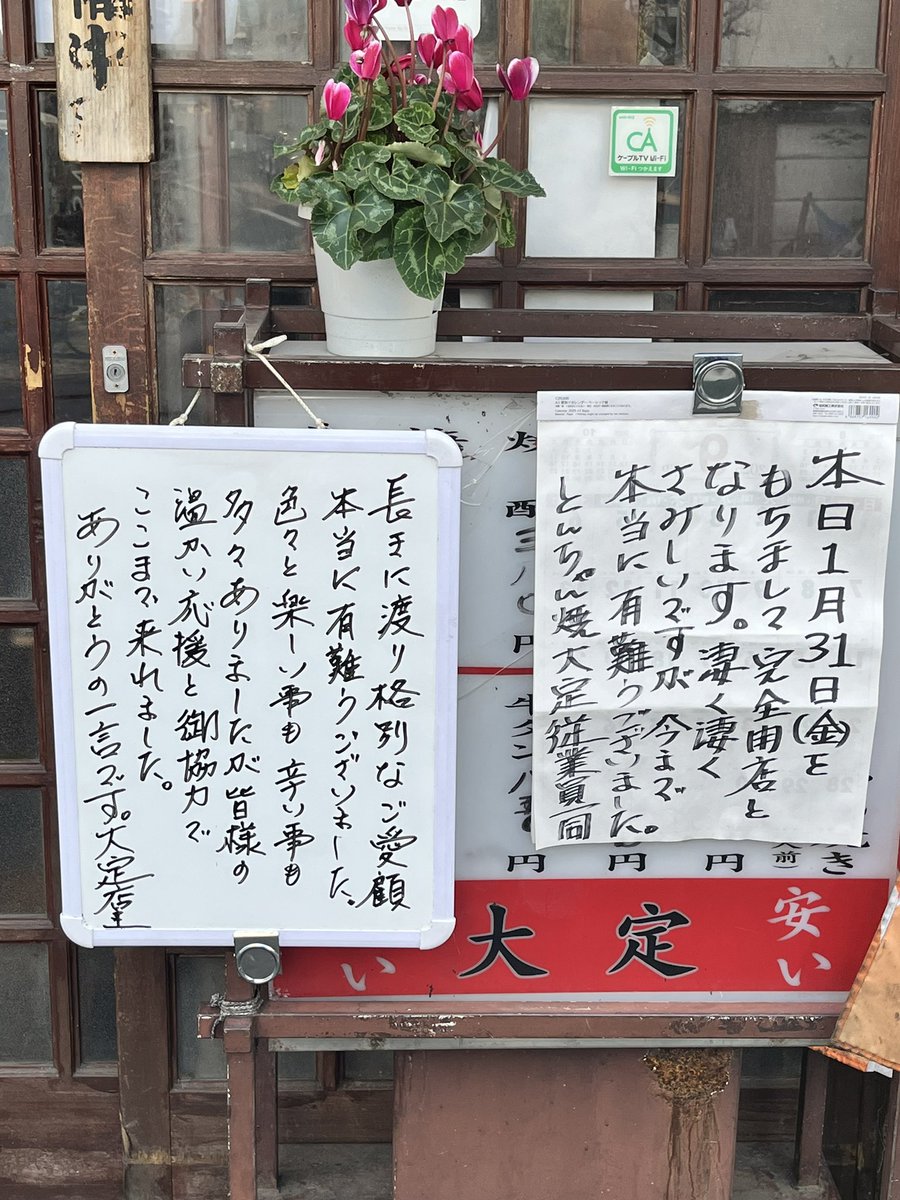 本日1月31日(金)を
もちまして完全閉店と
なります。凄く凄く
さみしいですが今まで
本当に有難うございました。
とんちゃん焼大定従業員一同
長きに渡り格別なご愛顧
本当に有難うございました、
色々と楽しい事も辛い事も
多々ありましたが皆様の
温かい応援と御協力で
ここまで来れました。
ありがとうの一言です。大定店主
CA
ケーブルTV Wi-Fi
Wi-Fi つかえます
円
円
円
円
人前
き
大定
安い
い